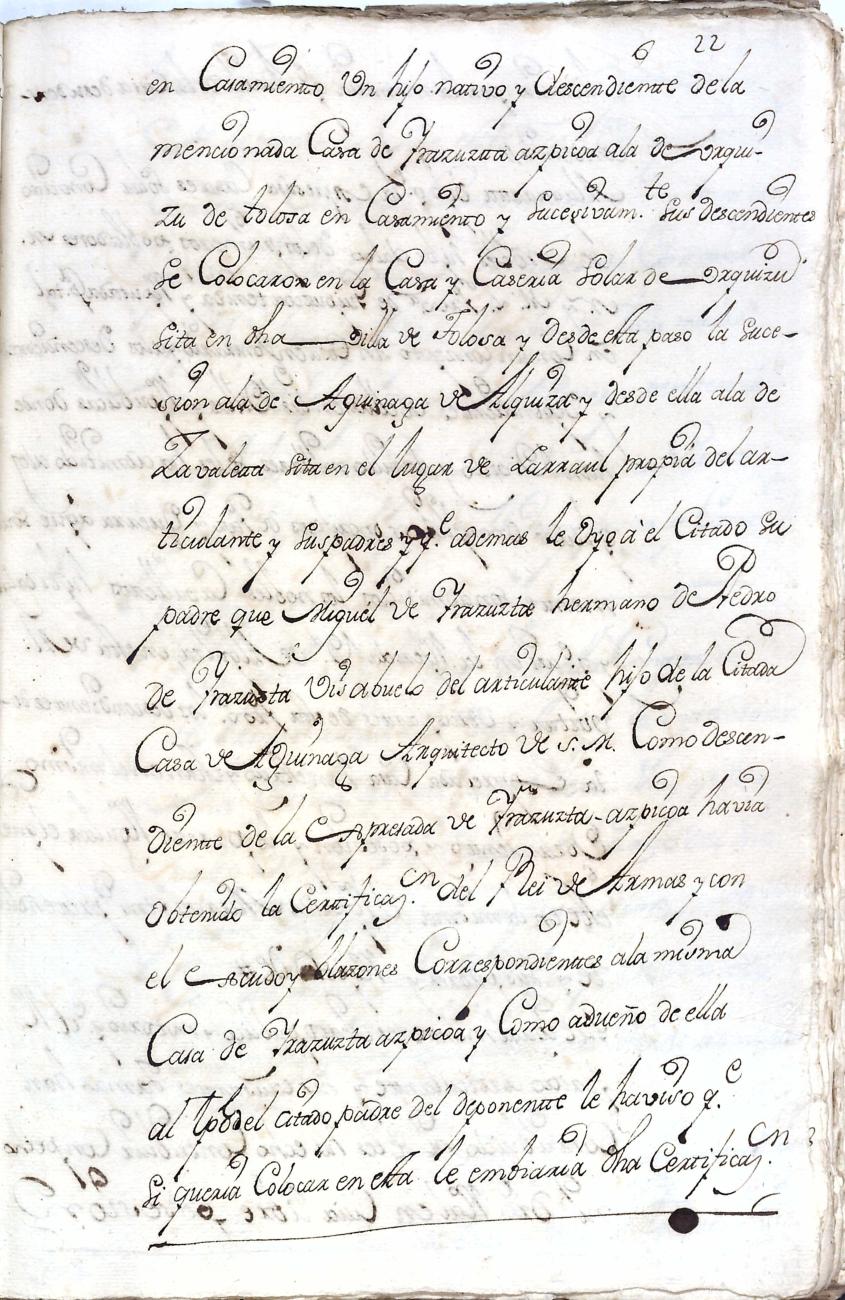 22
en Casamiento Un hijo nativo y descendiente de la
mencionada Casa de Yrazuzta azpicoa ala de Urqui-
zu de tolosa en Casamiento y sucesivam.te sus descendientes
se Colocaron en la Casa y Caseria solar de Urquizu
sita en dha Villa de Tolosa y desde esta paso la suce-
sion ala de Aguinaga de Alquiza y desde ella ala de
Zavaleta sita en el lugar de Larraul propia del ar-
ticulante y sus padres y q.e ademas le Dyo à el Citado su
padre que Miguel de Yrazuzta hermano de Pedro
de Yrazusta Visabuelo del articulante hijo de la Citada
Casa de Aguinaga Arquitecto de S. M. Como descen-
diente de la Espresada de Yrazuzta-azpicoa havia
Obtenido la Certificaz.on del Rei de Armas y con
el Escudo y blazones Correspondientes ala misma
Casa de Yrazuzta azpicoa y Como a dueño de ella
al tpo del citado padre del deponente le haviso q.e
si queria Colocar en esta le embiaria dha Certificaz.on